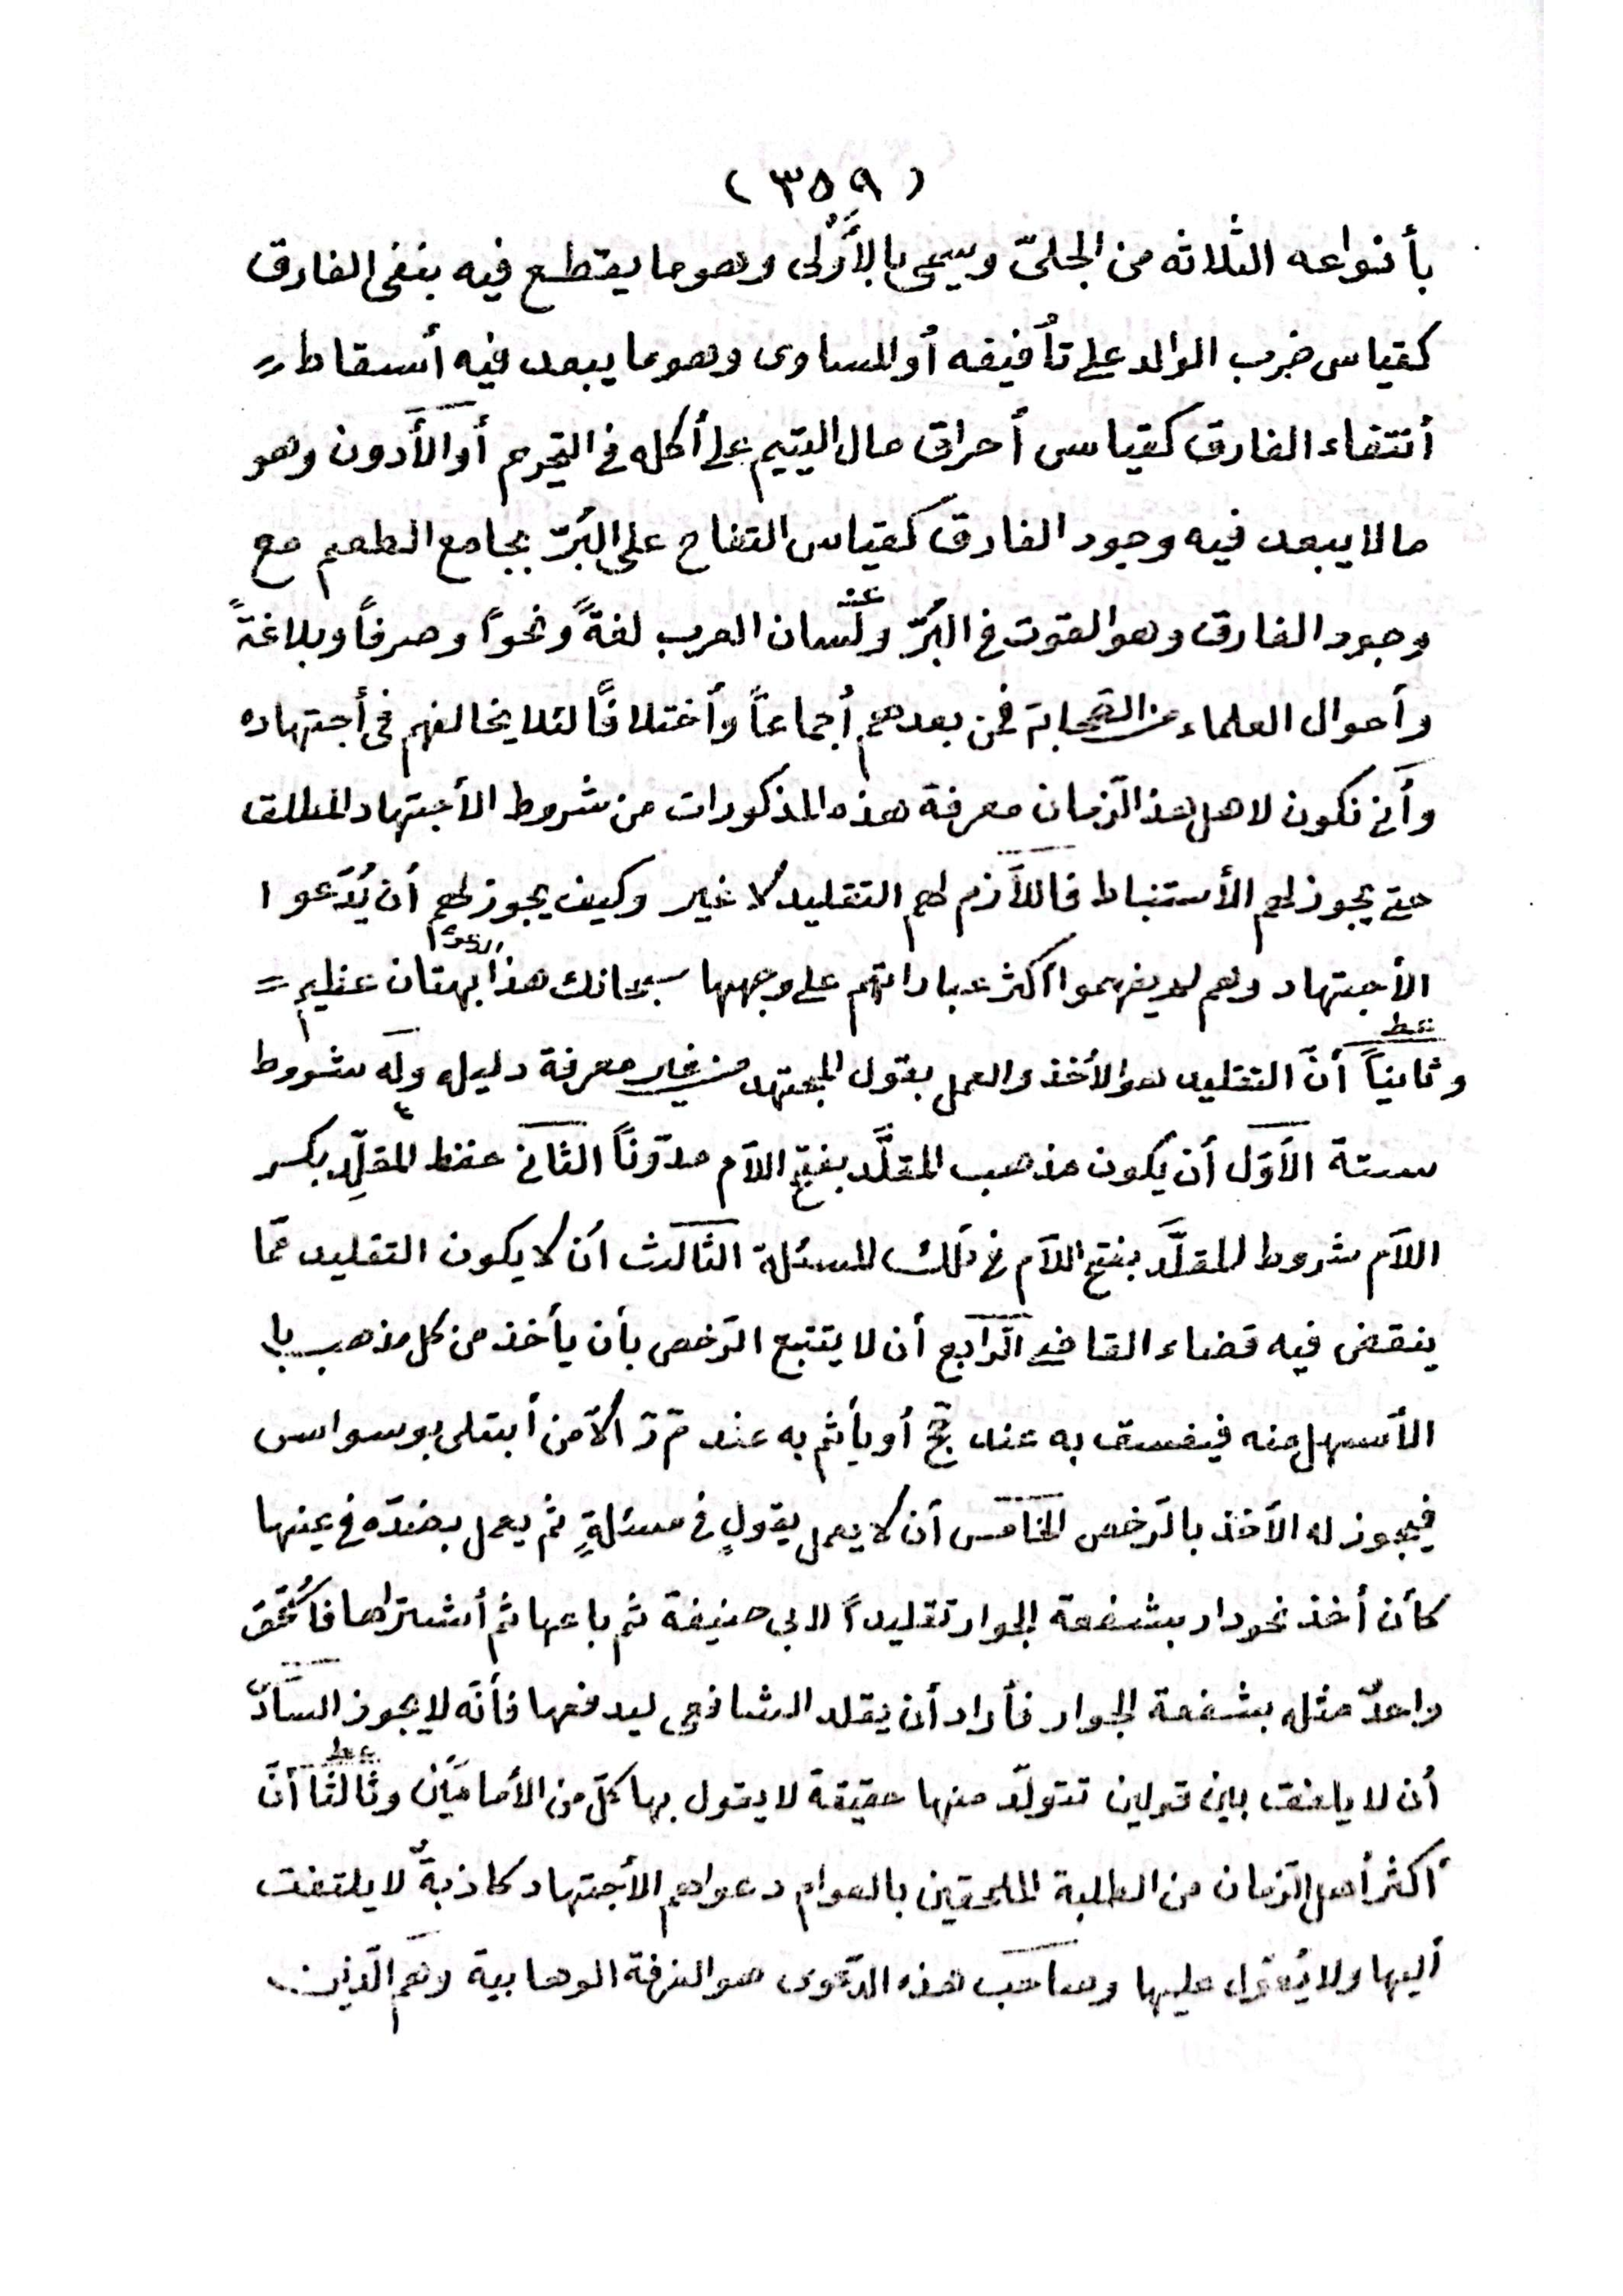 (٣٥٩)
بأنواعه الثلاثه من الجلىّ ويسمى بالأَوْلى وهو ما يقتطع فيه بنفى الفارق
كقياس ضرب الوالد على تأفيفه أو المساوى وهو ما يبعد فيه أسقاط =
أنتفاء الفارق كقياس أحراق مال اليتيم على أكله فى التحريم أو الأدون وهو
ما لا يبعد فيه وجود الفارق كقياس التفاح على البُرّ بجامع الطعم مع
وجود الفارق وهو القوت فى البُرّ ولسان العرب لغةً ونحواً وصرفاً وبلاغةً
وأحوال العلماء من الصّحابة فمن بعدهم أجماعاً وأختلافاً لئلا يخالفهم فى أجتهاده
وأنى نكون لاهل هذ الزمان معرفة هذه المذكورات من شروط الأجتهاد المطلق
حتى يجوز لهم الأستنباط فاللآزم لهم التقليد لا غير وكيف يجوز لهم أن يُدّعوا
الأجتهاد وهم لم يفهموا أكثر عباراتهم على وجهها سبحانك هذا بهتان عظيم =
وثانياً أنّ التقليد هو الأخذ والعمل بقول المجتهد من غير معرفة دليله وله شروط
ستة الأوّل أن يكون مذهب المقلَّد بفتح اللآم مدوّناً الثانى حفظ المقلِّد بكسر
اللآم شروط المقلَّد بفتح اللآم فى تلك المسئلة الثالث أن لا يكون التقليد ممّا
ينقض فيه قضاء القاضى الرّابع أن لا يتتبع الرّخص بأن يأخذ من كل مذهب با
الأسهل منه فيفسق به عند حج أو يأثم به عند م ر الاّ من أبتلى بوسواس
فيجوز له الأخذ بالرّخص الخامس أن لا يعمل بقولٍ فى مسئلةٍ ثم يعمل بضدّه فى عينها
كأن أخذ نحو دار بشفعة الجوار تقليداً لابى حنيفة ثم باعها ثم أشتراها فأستحق
واحدٌ مثله بشفعة الجوار فأراد أن يقلد الشافعى ليدفعها فأنّه لا يجوز السّادّس
أن لا يلفق بين قولين تتولّد منها حقيقة لا يقول بها كلّ من الأمامَيْن وثالثاً أنّ
أكثر أهل الزمان من الطلبة الملحقين بالعوام دعواهم الأجتهاد كاذبةٌ لا يلتفت
أليها ولا يُعَوّل عليها وصاحب هذه الدّعوى هو الفرقة الوهابية وهم الّذين